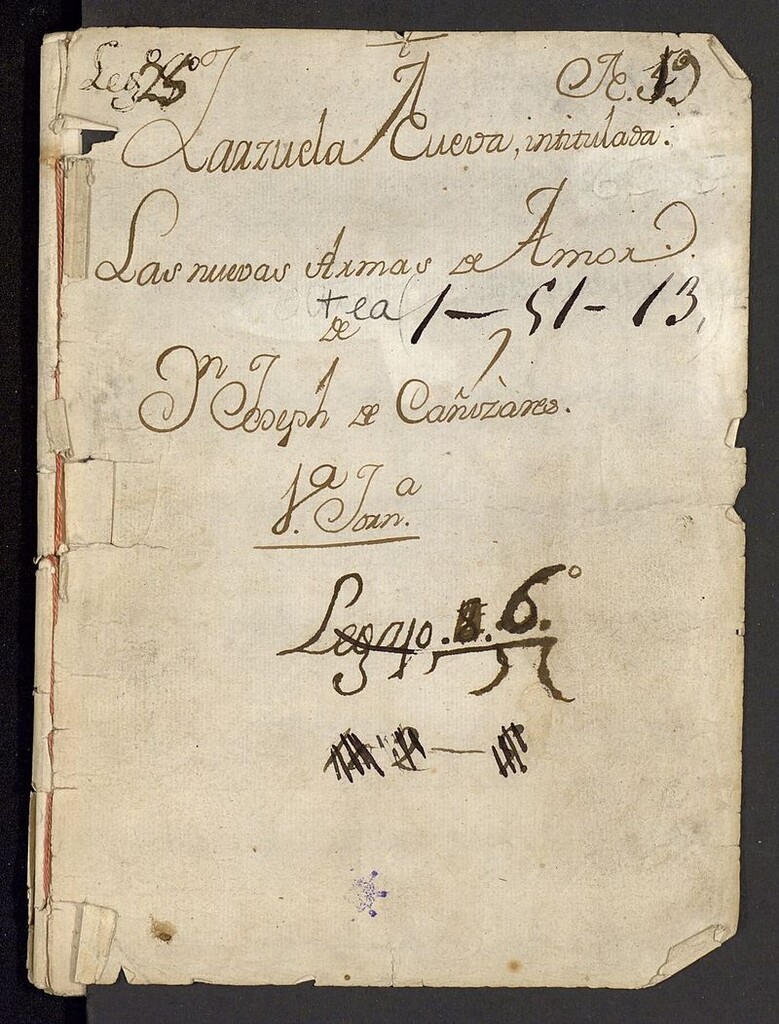 Leg.º 25º
A. 19
Zarzuela Nueva, intitulada:
Las nuevas Armas de Amor.
tea 1-51-13,
de
Dn. Joseph de Cañizàres.
1.ª Jorn.ª
Legajo. 8. 6.º